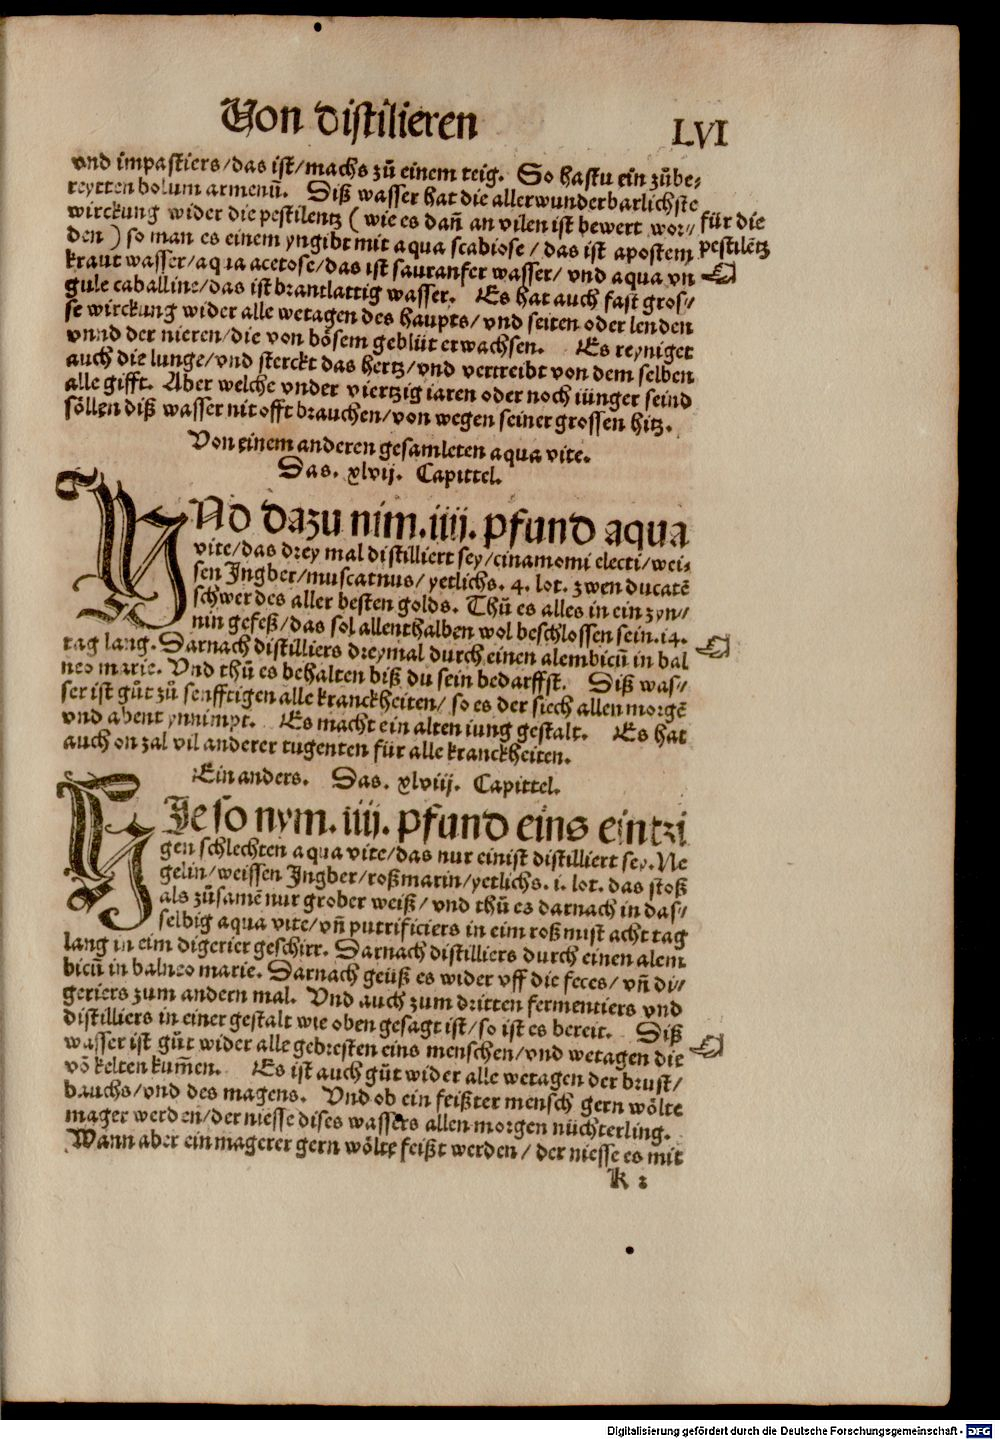 Von distilieren
LVI
vnd impastiers/das ist/machs zů einem teig. So hastu ein zůbe⸗
reytten bolum armenū. Diß wasser hat die allerwunderbarlichste
wirckung wider die pestilentz ( wie es dañ an vilen ist bewert wor⸗
den ) so man es einem yngibt mit aqua scabiose / das ist apostem
kraut wasser/aqua acetose/das ist sauranfer wasser/ vnd aqua vn
gule caballine/das ist brantlattig wasser. Es hat auch fast gros⸗
se wirckung wider alle wetagen des haupts/vnd seiten oder lenden
vnnd der nieren/die von bösem geblüt erwachsen. Es reyniget
auch die lunge/vnd sterckt das hertz/vnd vertreibt von dem selben
alle gifft. Aber welche vnder viertzig iaren oder noch iünger seind
söllen diß wasser nit offt brauchen/von wegen seiner grossen hitz.
für die
pestilētz
Von einem anderen gesamleten aqua vite.
Das. xlvij. Capittel.
VNd dazu nim.iiij.pfund aqua
vite/das drey mal distilliert sey/cinamomi electi/wei⸗
sen Ingber/muscatnus/yetlichs. 4. lot. zwen ducatē
schwer des aller besten golds. Thů es alles in ein zyn⸗
nin gefeß/das sol allenthalben wol beschlossen sein.14.
tag lang. Darnach distilliers dreymal durch einen alembicū in bal
neo marie. Vnd thů es behalten biß du sein bedarffst. Diß was⸗
ser ist gůt zů senfftigen alle kranckheiten/ so es der siech allen morgē
vnd abent ynnimpt. Es macht ein alten iung gestalt. Es hat
auch on zal vil anderer tugenten für alle kranckheiten.
Ein anders. Das. xlviij. Capittel.
HIe so nym.iiij.pfund eins eintzi
gen schlechten aqua vite/das nur einist distilliert sey. Ne
gelin/weissen Ingber/roßmarin/yetlichs. i. lot. das stoß
als zůsamē nur grober weiß/ vnd thů es darnach in das⸗
selbig aqua vite/vñ putrificiers in eim roß mist acht tag
lang in eim digerier geschirr. Darnach distilliers durch einen alem
bicū in balneo marie. Darnach geüß es wider vff die feces/ vñ di⸗
geriers zum andern mal. Vnd auch zum dritten fermentiers vnd
distilliers in einer gestalt wie oben gesagt ist/so ist es bereit. Diß
wasser ist gůt wider alle gebresten eins menschen/vnd wetagen die
vō kelten kum̄en. Es ist auch gůt wider alle wetagen der brust/
bauchs/vnd des magens. Vnd ob ein feißter mensch gern wölte
mager werden/der niesse dises wassers allen morgen nüchterling.
Wann aber ein magerer gern wölte feißt werden/ der niesse es mit
K 2
Digitalisierung gefördert durch die Deutsche Forschungsgemeinschaft - DFG